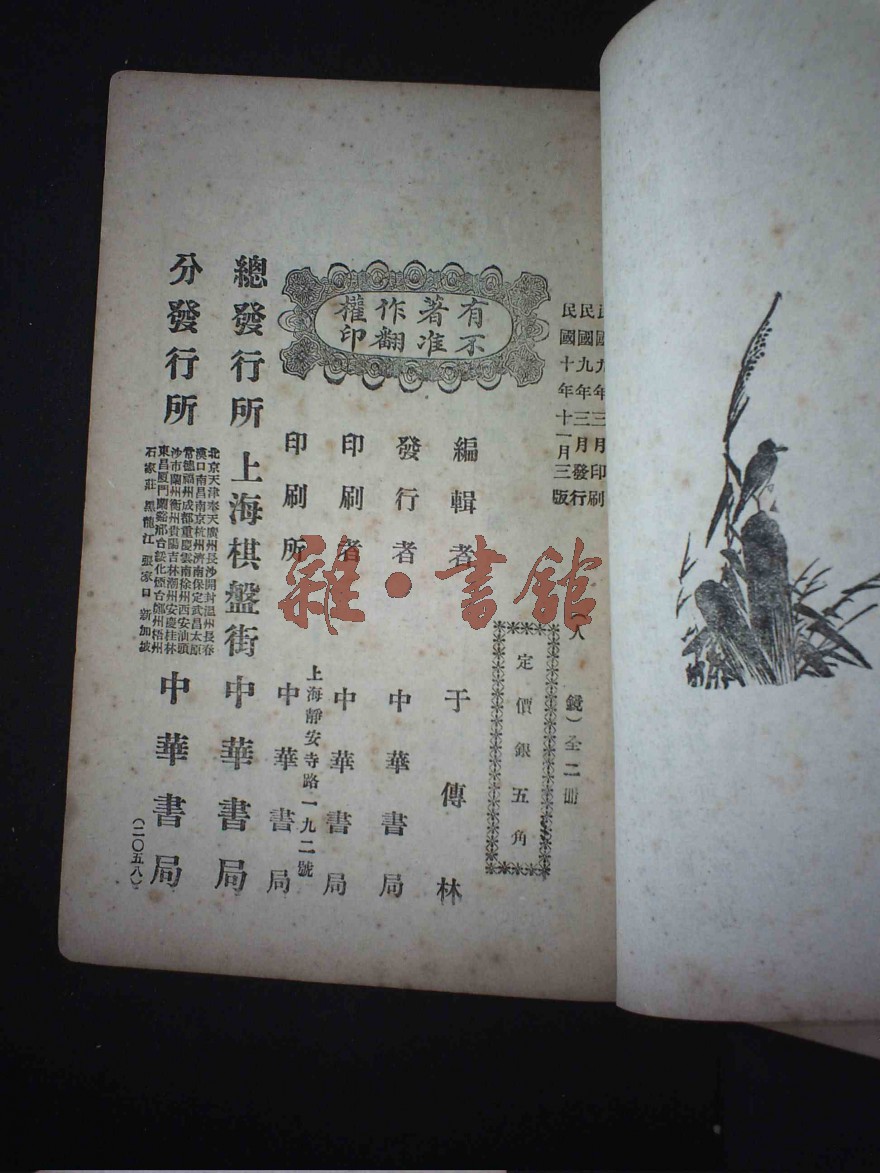 民國九年三月印刷
民國九年三月發行
民國十年十一月三版
(人鏡)全二冊
定價銀五角
有著作權
不准翻印
編輯者 于傳林
發行者 中華書局
印刷者 中華書局
印刷所 上海靜安寺路一九二號 中華書局
總發行所 上海棋盤街 中華書局
分發行所
北京天津奉天廣州長沙開封溫州長春
漢口南昌南京杭州濟南保定武昌太原
常德福州成都重慶雲南徐州西安汕頭
沙市蘭州衡州貴陽吉林潮州安慶桂林
東昌厦門蘭谿邢台綏化煙台鄭州梧州
石家莊 黑龍江 張家口 新加坡
中華書局
(二〇五八)
雜·書館